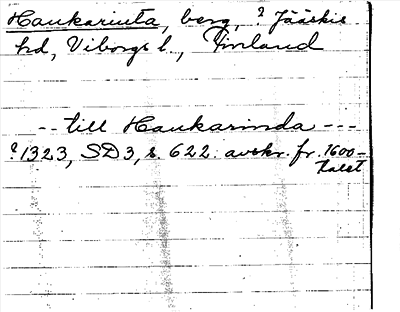 Haukarinta, berg, ? Jääskis
hd, Viborgs l., Finland
-- till Haukarinda ---
? 1323, SD 3, s. 622. avskr. fr. 1600-
talet